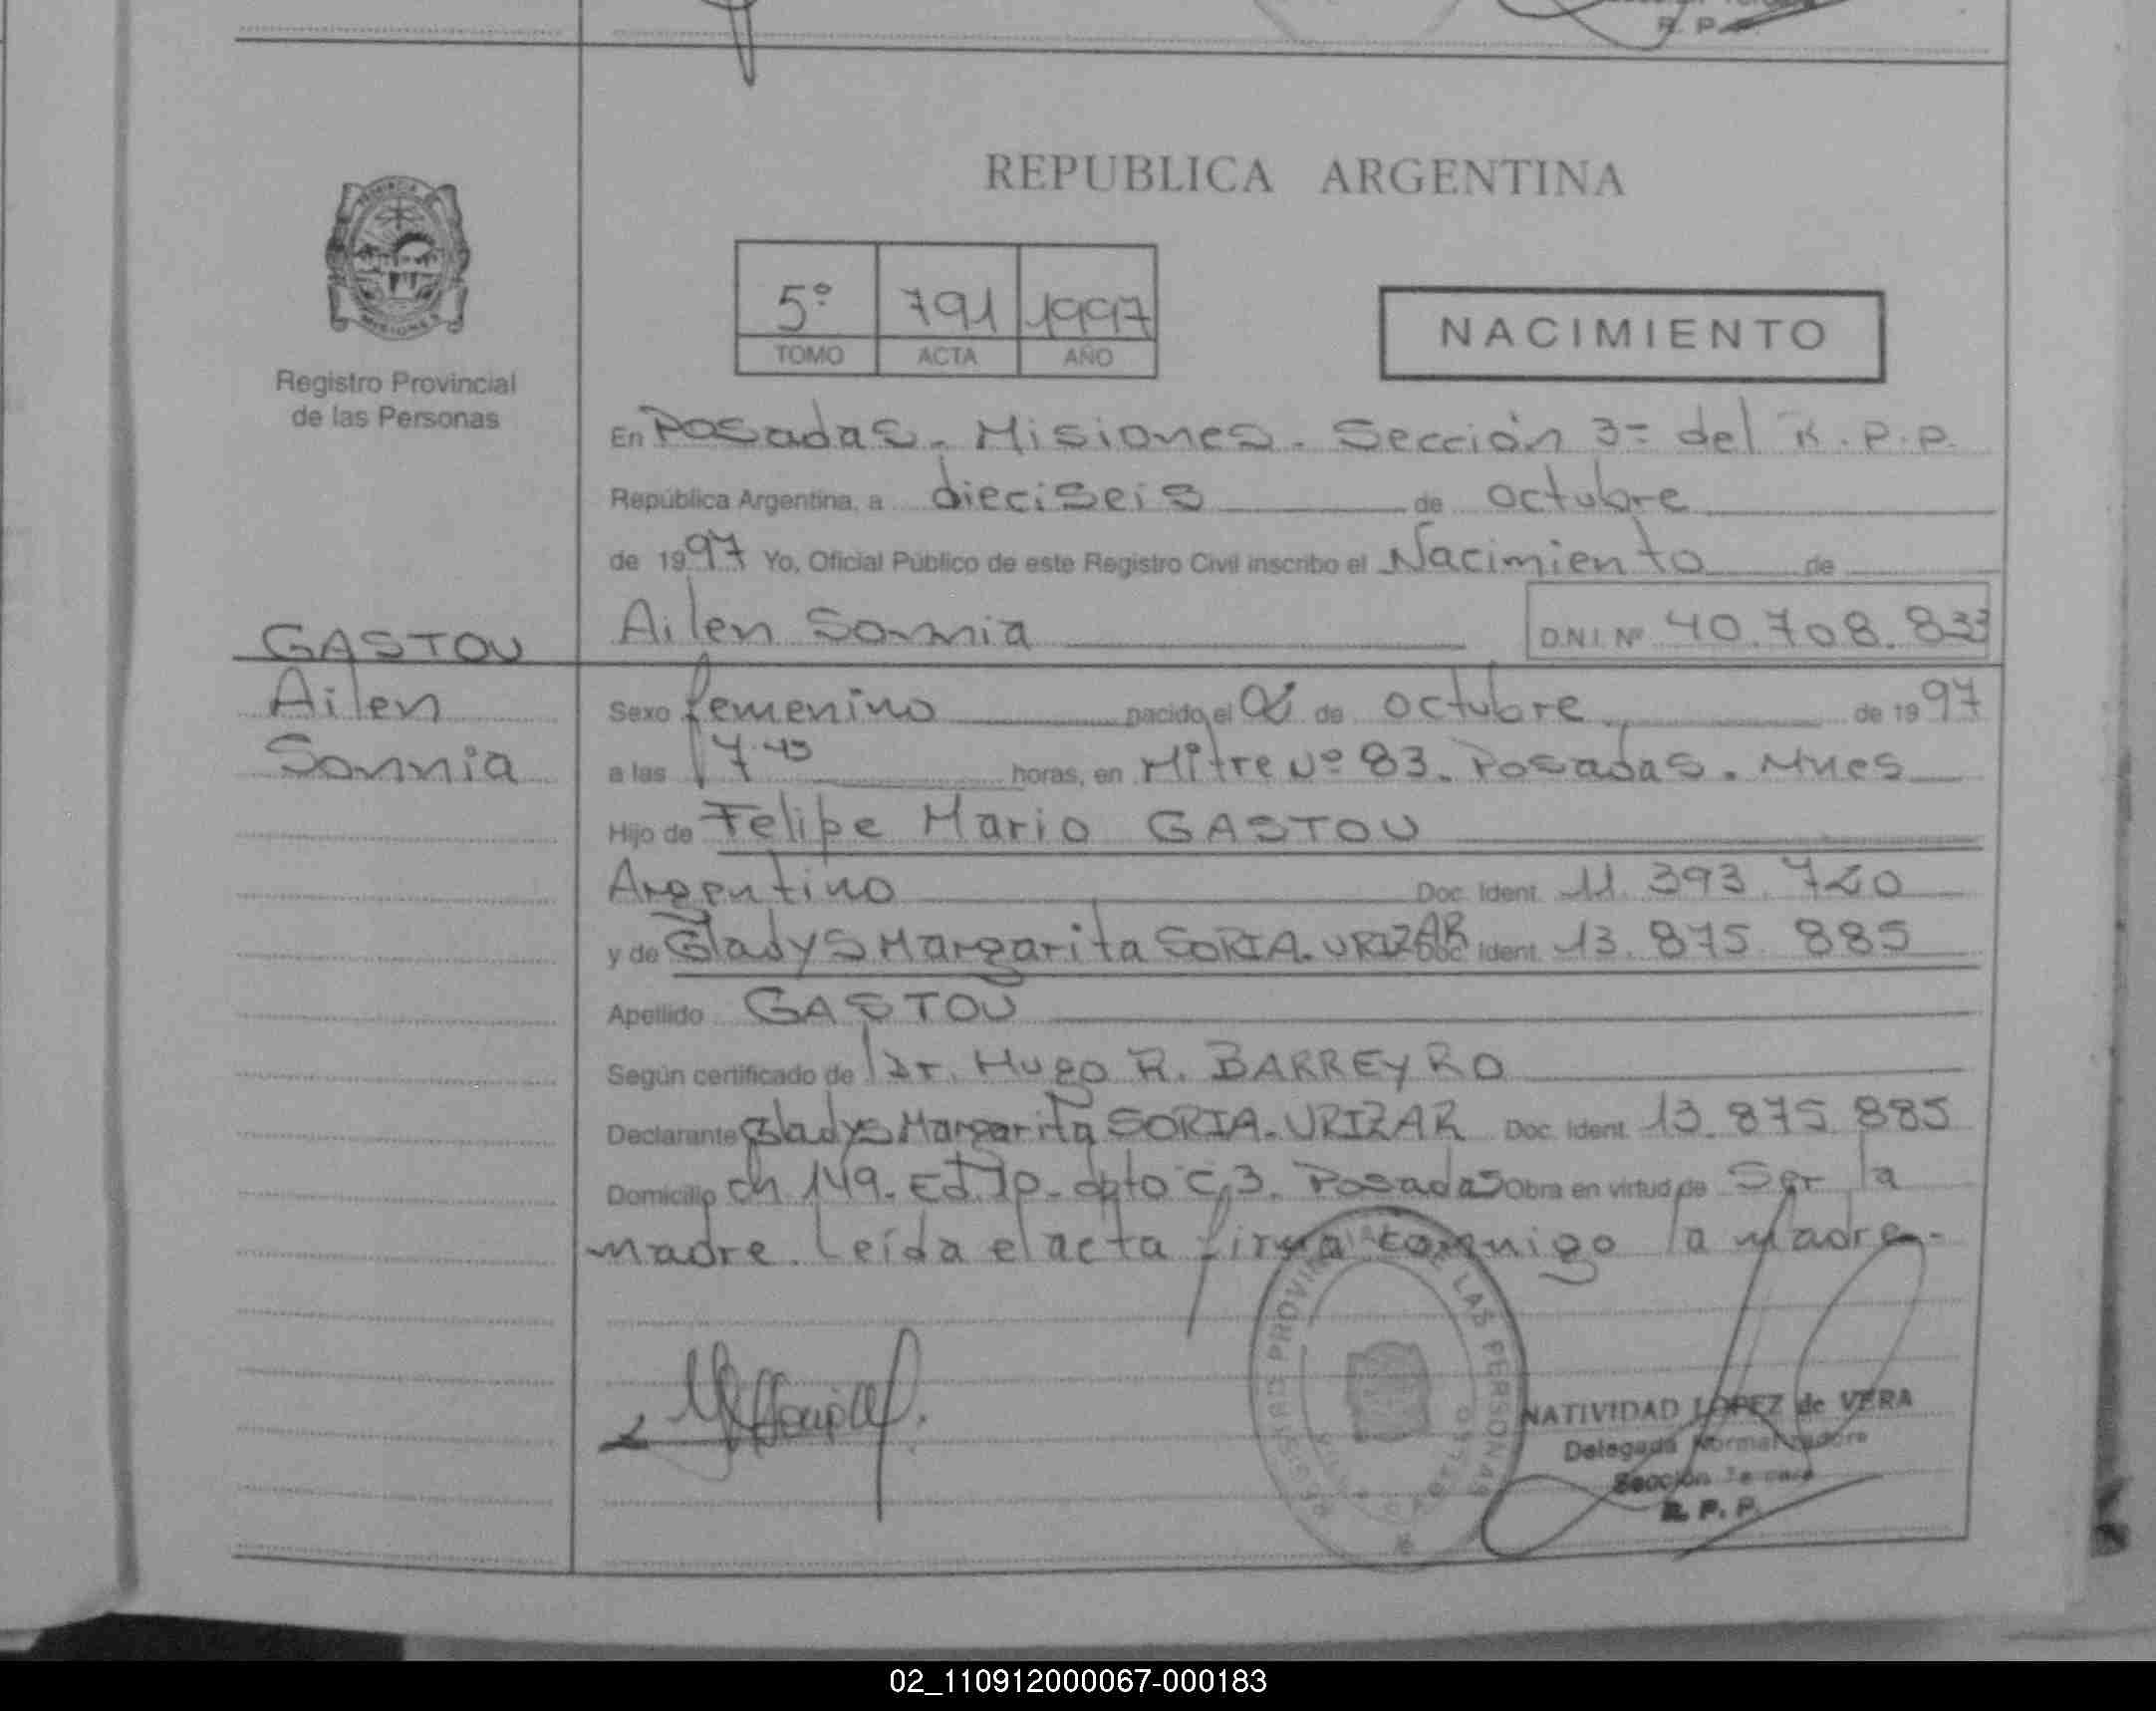 R. P.
REPUBLICA ARGENTINA
5º 791 1997
TOMO ACTA AÑO
NACIMIENTO
MISIONES
Registro Provincial
de las Personas
En Posadas. Misiones. Sección 3= del R.P.P.
República Argentina, a dieciseis de octubre
de 1997 Yo, Oficial Público de este Registro Civil inscribo el Nacimiento de
Ailen Sonnia D.N.I. Nº 40.708.833
GASTOU
Ailen
Sonnia
Sexo femenino nacido el de octubre de 1997
a las 17.45 horas, en Mitre Nº 83. Posadas. Mnes
Hijo de Felipe Mario GASTOU
Argentino Doc. Ident. 11.393.720
y de Gladys Margarita SORIA. URIZAR Doc. Ident. 13.875.885
Apellido GASTOU
Según certificado de Dr. Hugo R. BARREYRO
Declarante Gladys Margarita SORIA. URIZAR Doc. Ident. 13.875.885
Domicilio ch 149. Ed. dpto C,3. Posadas Obra en virtud de Ser la
madre. Leída el acta firma conmigo la madre.-
NATIVIDAD LOPEZ de VERA
Delegada Normalizadora
Sección
R. P. P.
02_110912000067-000183